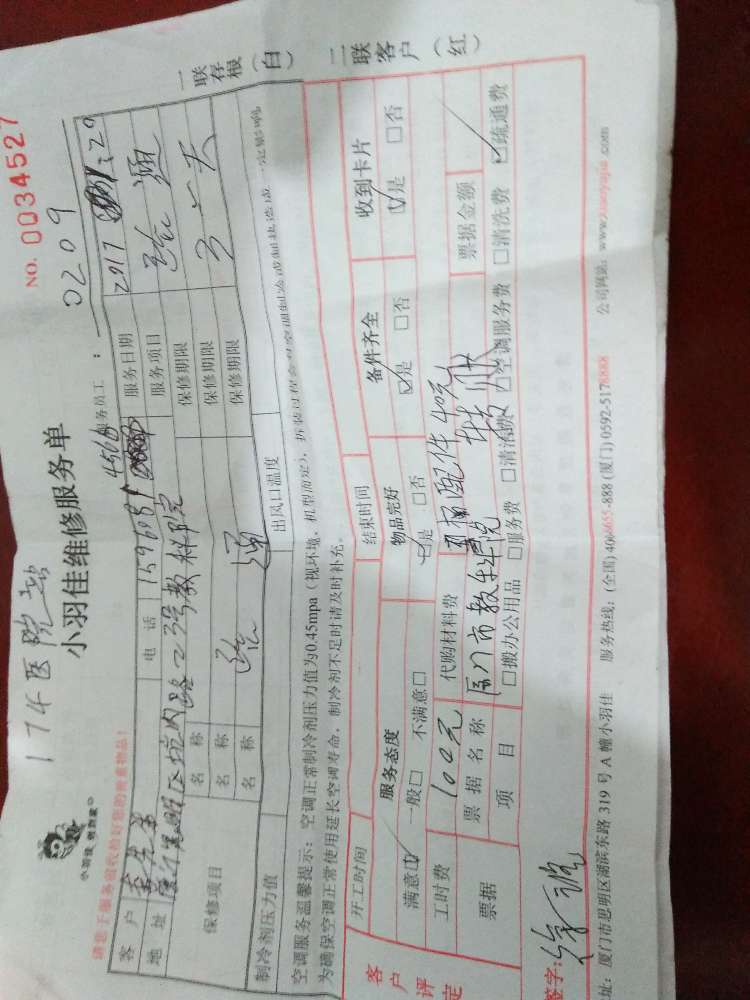 174医院站
NO. 0034527
小羽佳维修服务单
服务员工： 0209
小羽佳 做到家
请您于服务前收拾好您的贵重物品！
客户 电话 服务日期 2017
地址 思明区坑内路23号教科院 服务项目 疏通
保修项目 名称 保修期限
名称 保修期限
名称 疏通 保修期限 30天
制冷剂压力值 出风口温度
空调服务温馨提示：空调正常制冷剂压力值为0.45mpa（视环境、机型而定），拆装过程会对空调制冷或制热造成一定影响，
为确保空调正常使用延长空调寿命，制冷剂不足时请及时补充。
一联存根（白） 二联客户（红）
客户评定
开工时间 结束时间
服务态度 物品完好 备件齐全 收到卡片
满意☑ 一般□ 不满意□ ☑是 □否 ☑是 □否 ☑是 □否
工时费 100元 代购材料费 配件40元
票据 票据名称 厦门市教科院 票据金额
项目 □搬办公用品 □服务费 □清洁费 □空调服务费 □清洗费 ☑疏通费
签字：
址：厦门市思明区湖滨东路319号A幢小羽佳 服务热线：(全国) 400-6655-888 (厦门) 0592-5178888 公司网站：www.xiaoyujia.com